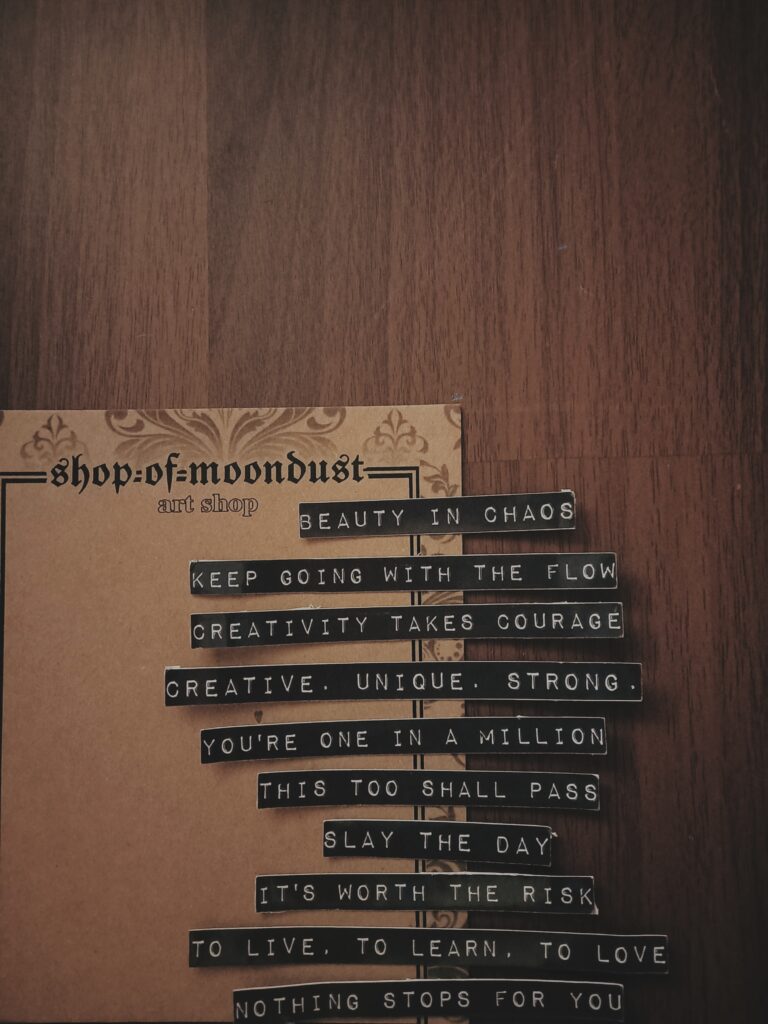 shop-of-moondust
art shop
BEAUTY IN CHAOS
KEEP GOING WITH THE FLOW
CREATIVITY TAKES COURAGE
CREATIVE. UNIQUE. STRONG.
YOU'RE ONE IN A MILLION
THIS TOO SHALL PASS
SLAY THE DAY
IT'S WORTH THE RISK
TO LIVE, TO LEARN, TO LOVE
NOTHING STOPS FOR YOU